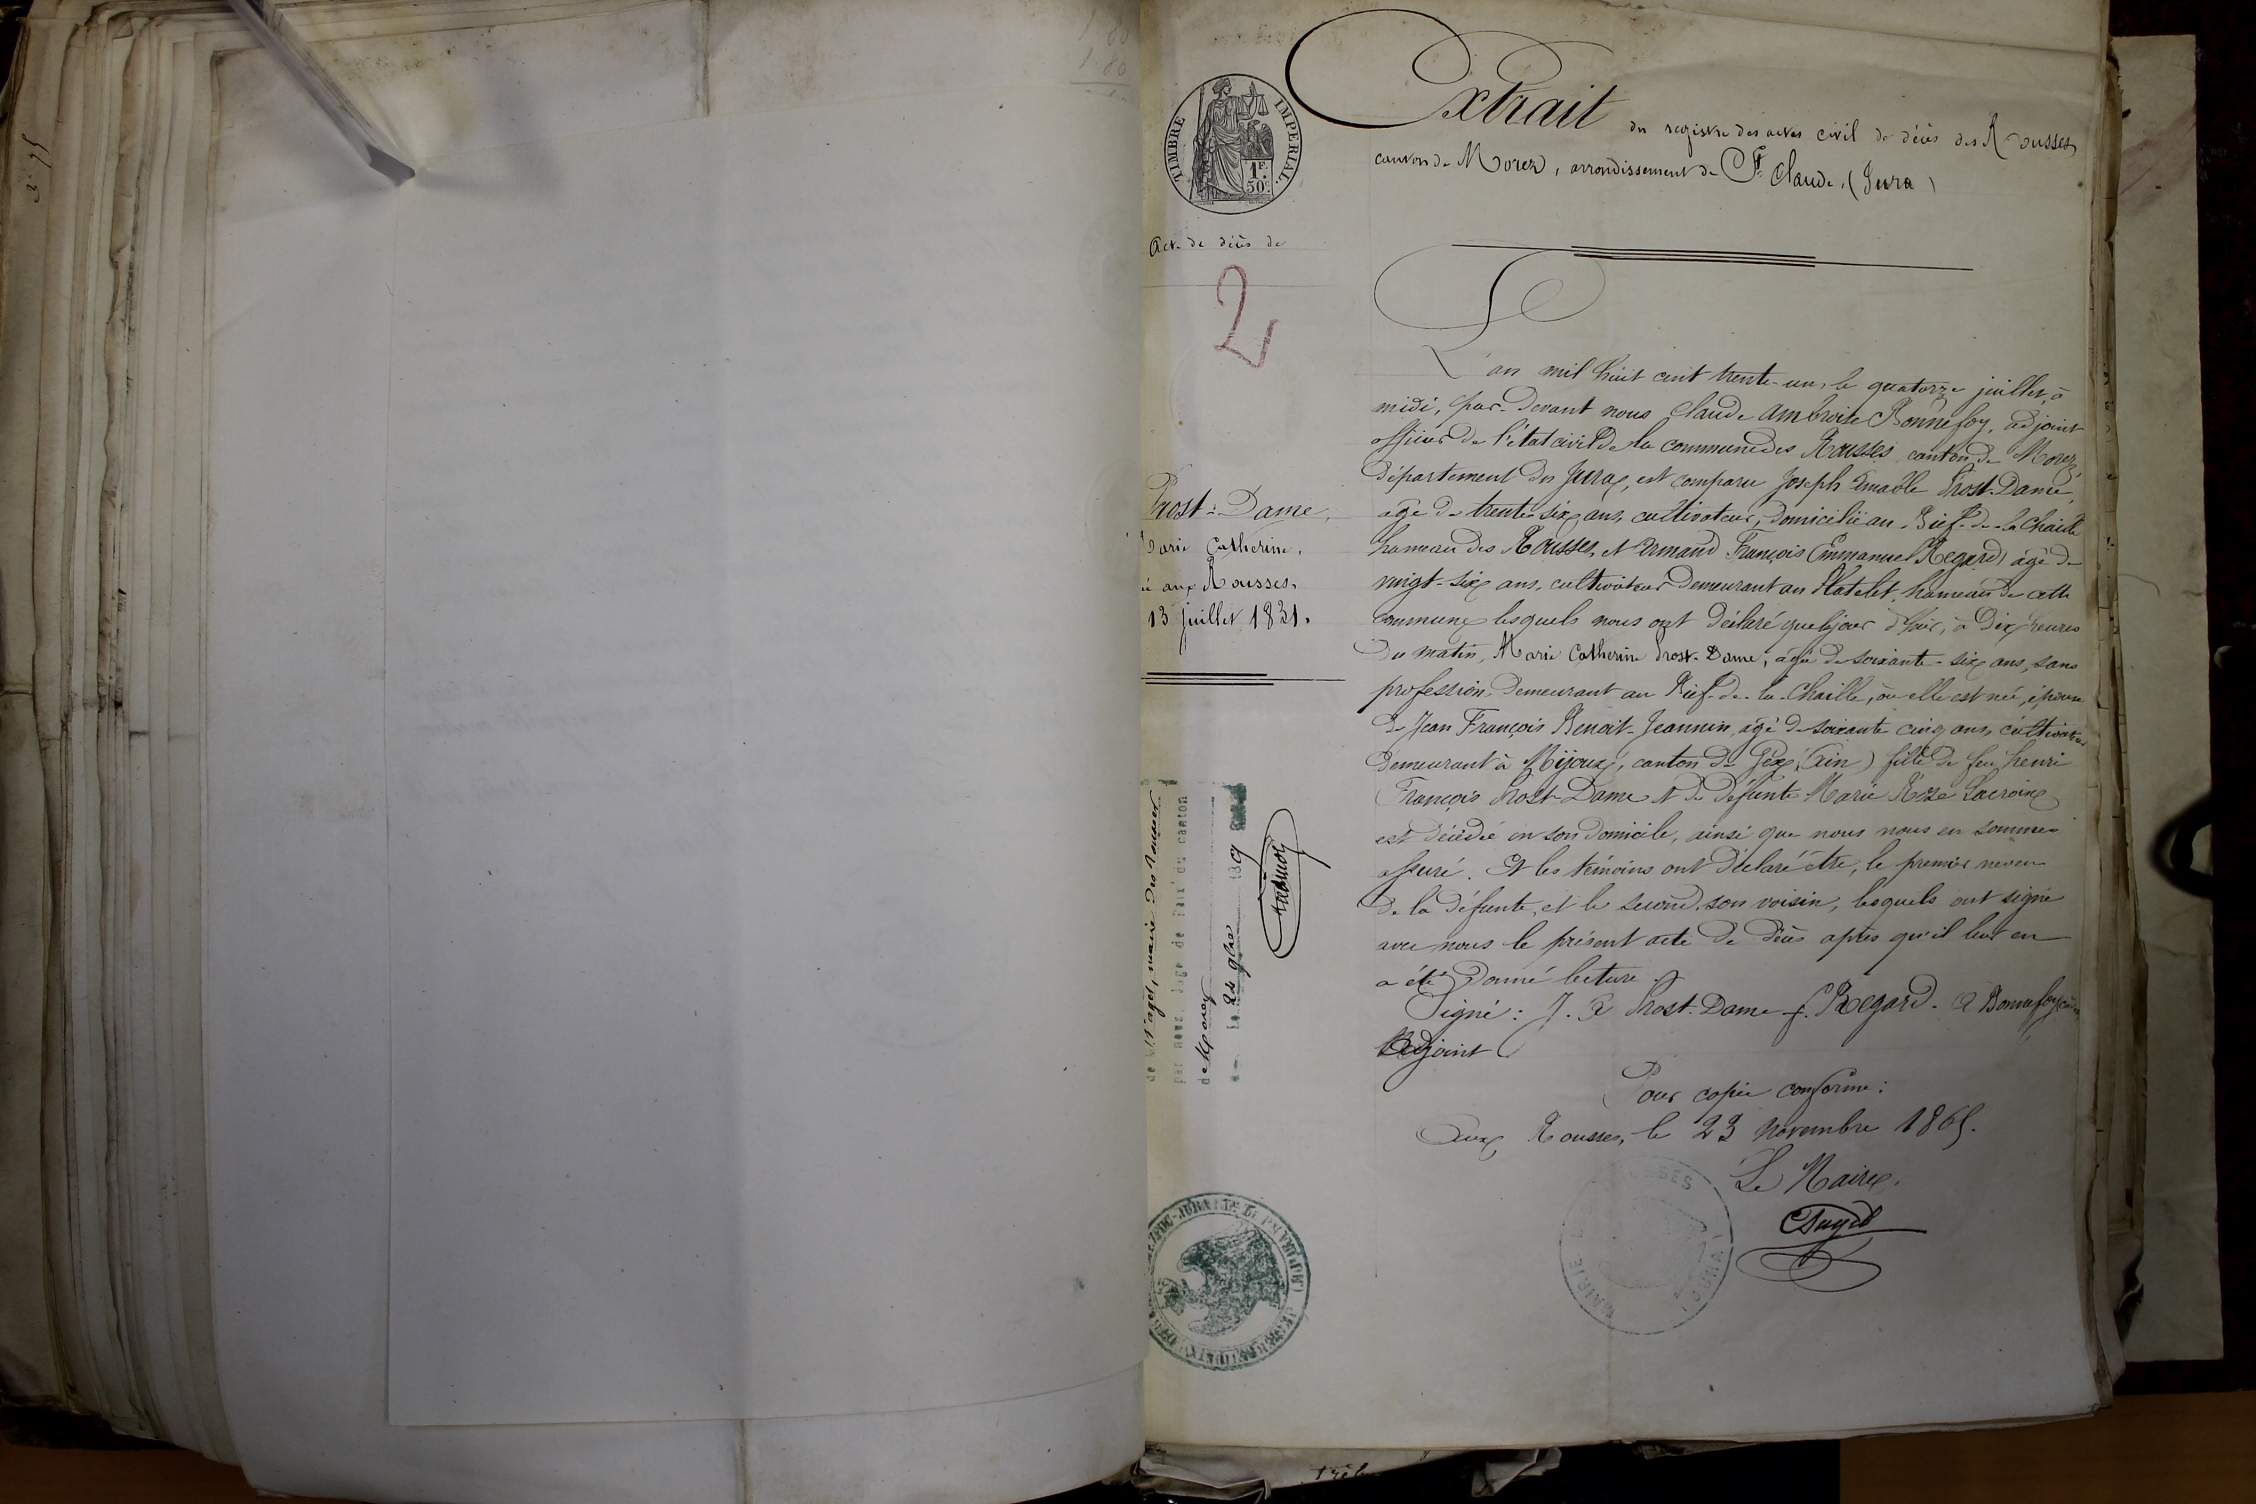 Extrait du registre des actes civil de décès des Rousses
canton de Morez, arrondissement de St. Claude, (Jura)
TIMBRE IMPERIAL.
1F.
50c.
Act. de décès de
2
Prost-Dame
Marie Catherine,
aux Rousses,
13 juillet 1831.
L'an mil huit cent trente-un, le quatorze juillet, à
midi, par-devant nous Claude Ambroise Bonnefoy, adjoint
officier de l'état civil de la commune des Rousses canton de Morez,
département du Jura, est comparu Joseph Aimable Prost-Dame,
âgé de trente-six ans, cultivateur, domicilié au Bief-de-la-Chaille
hameau des Rousses, et Armand François Emmanuel Regard âgé de
vingt-six ans, cultivateur demeurant au Platelet, hameau de cette
commune lesquels nous ont déclaré que le jour d'hier, à dix heures
du matin, Marie Catherine Prost-Dame, âgée de soixante-six ans, sans
profession, demeurant au Bief-de-la-Chaille, où elle est née, épouse
de Jean François Benoit-Jeannin âgé de soixante cinq ans, cultivateur
demeurant à Mijoux, canton de Gex, (Ain) fille de feu henri
François Prost-Dame et de défunte Marie Rose Lacroix
est décédée en son domicile, ainsi que nous nous en sommes
assuré. Et les témoins ont déclaré être, le premier neveu
de la défunte, et le second, son voisin, lesquels ont signé
avec nous le présent acte de décès après qu'il leur en
a été donné lecture
Signé: J. A Prost-Dame f. Regard. A Bonnefoy
Adjoint
Pour copie conforme:
Aux Rousses, le 23 novembre 1869.
Le Maire,
MAIRIE
(JURA)
maire des Rousses
par nous, Juge de Paix du canton
de Morez
le 24 9bre 1869